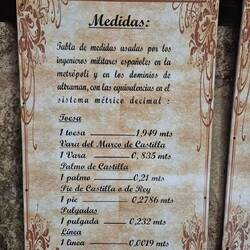 Medidas:
Tabla de medidas usadas por los
ingenieros militares españoles en la
metrópoli y en los dominios de
ultramar, con las equivalencias en el
sistema métrico decimal :
Toesa
1 toesa 1,949 mts
Vara del Marco de Castilla
1 Vara 0, 835 mts
Palmo de Castilla
1 palmo 0,21 mts
Pie de Castilla o de Rey
1 pie 0,2786 mts
Pulgadas
1 pulgada 0,232 mts
Línea
1 línea 0,0019 mts